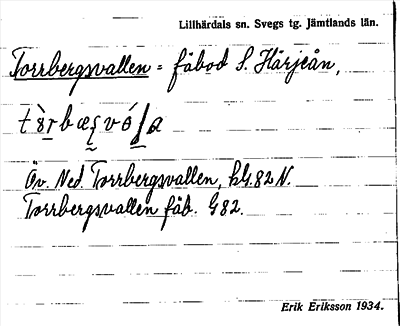 Lillhärdals sn. Svegs tg. Jämtlands län.
Torrbergsvallen = fäbod S. Härjeån,
Öv. Ned. Torrbergsvallen, kG.82 N.
Torrbergsvallen fäb. G82.
Erik Eriksson 1934.